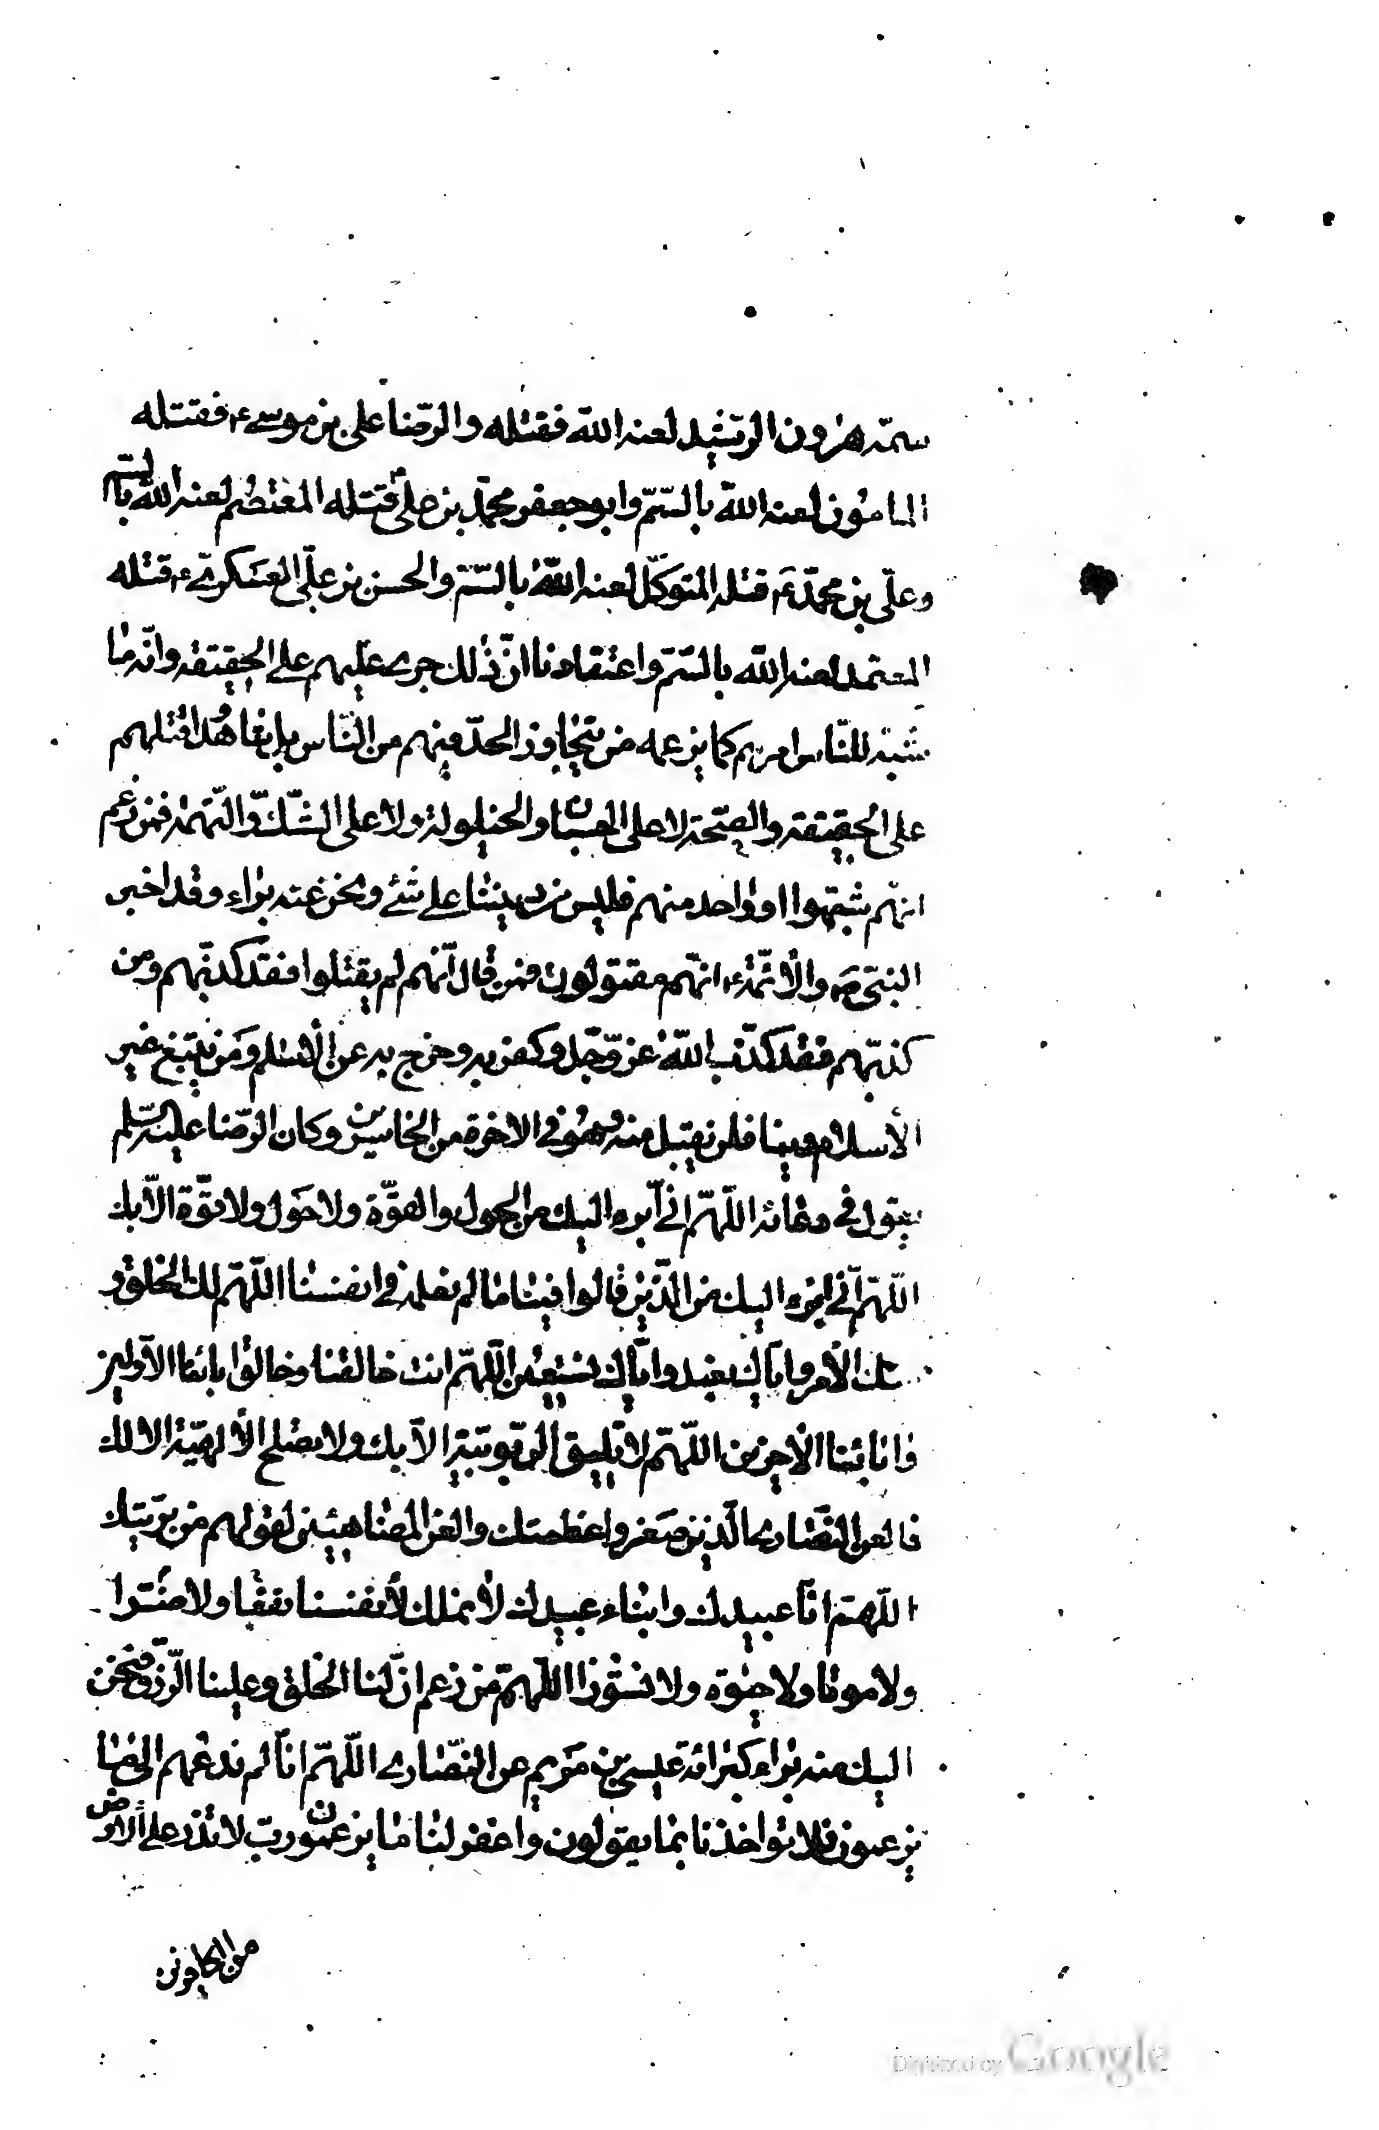 سمّه هرون الرّشيد لعنه اللّه فقتله والرّضا علي بن موسى ع فقتله
المامون لعنه اللّه بالسّمّ وابو جعفر محمّد بن علي ع قتله المعتصم لعنه اللّه بالسّم
وعلّي بن محمّد ع قتله المتوكّل لعنه اللّه بالسّمّ والحسن بن علّي العسكريّ ع قتله
المعتمد لعنه اللّه بالسّمّ واعتقادنا انّ ذلك جرى عليهم على الحقيقه وانّه ما
شبّه للنّاس امرهم كما يزعمه من يتجاوز الحدّ فيهم من النّاس بل شاهدوا قتلهم
على الحقيقه والصّحة لا على الحسبان والحيلولة ولا على الشّكّ والتّهمة فمن زعم
انهّم شبّهوا او واحد منهم فليس من ديننا على شئ ونحن عنه براء وقد اخبر
النبّى ص والائمّة ع انهّم مقتولون فمن قال انّهم لم يقتلوا فقد كذبّهم ومن
كذبّهم فقد كذّب اللّه عزّ وجّل وكفر به وخرج به عن الاسلم ومن يبتغ غير
الأسلام دينا فلن يقبل منه وهو في الاخرة من الخاسرين وكان الرّضا عليه السّلم
يقول في دعائه اللّهمّ انّي أبرء اليك من الحول والقوّة ولا حول ولا قوّة الّا بك
اللّهمّ انّي ابرء اليك من الّذين قالوا فينا ما لم نعلمه في انفسنا اللّهمّ لك الخلق و
منك الأمر وايّاك نعبد وايّاك نستعين اللّهمّ انت خالقنا وخالق ابائنا الأوّلين
وابائنا الأخرين اللّهمّ لا تليق الرّبوبيّة الّا بك ولا تصلح الألهيّة الّا لك
فالعن النّصارى الّذين صغّروا عظمتك والعن المضاهئين لقولهم من بريّتك
اللّهمّ انّا عبيدك وابناء عبيدك لا نملك لأنفسنا نفعا ولا ضرّا
ولا موتا ولا حيوة ولا نشورا اللّهمّ من زعم انّ لنا الخلق وعلينا الرّزق فنحن
اليك منه براء كبرائة عيسى بن مريم عن النّصارى اللّهمّ انّا لم ندعهم الى ما
يزعمون فلا تؤاخذنا بما يقولون واغفر لنا ما يزعمون ربّ لا تذر على الارض
من الكافرين
Digitized by Google